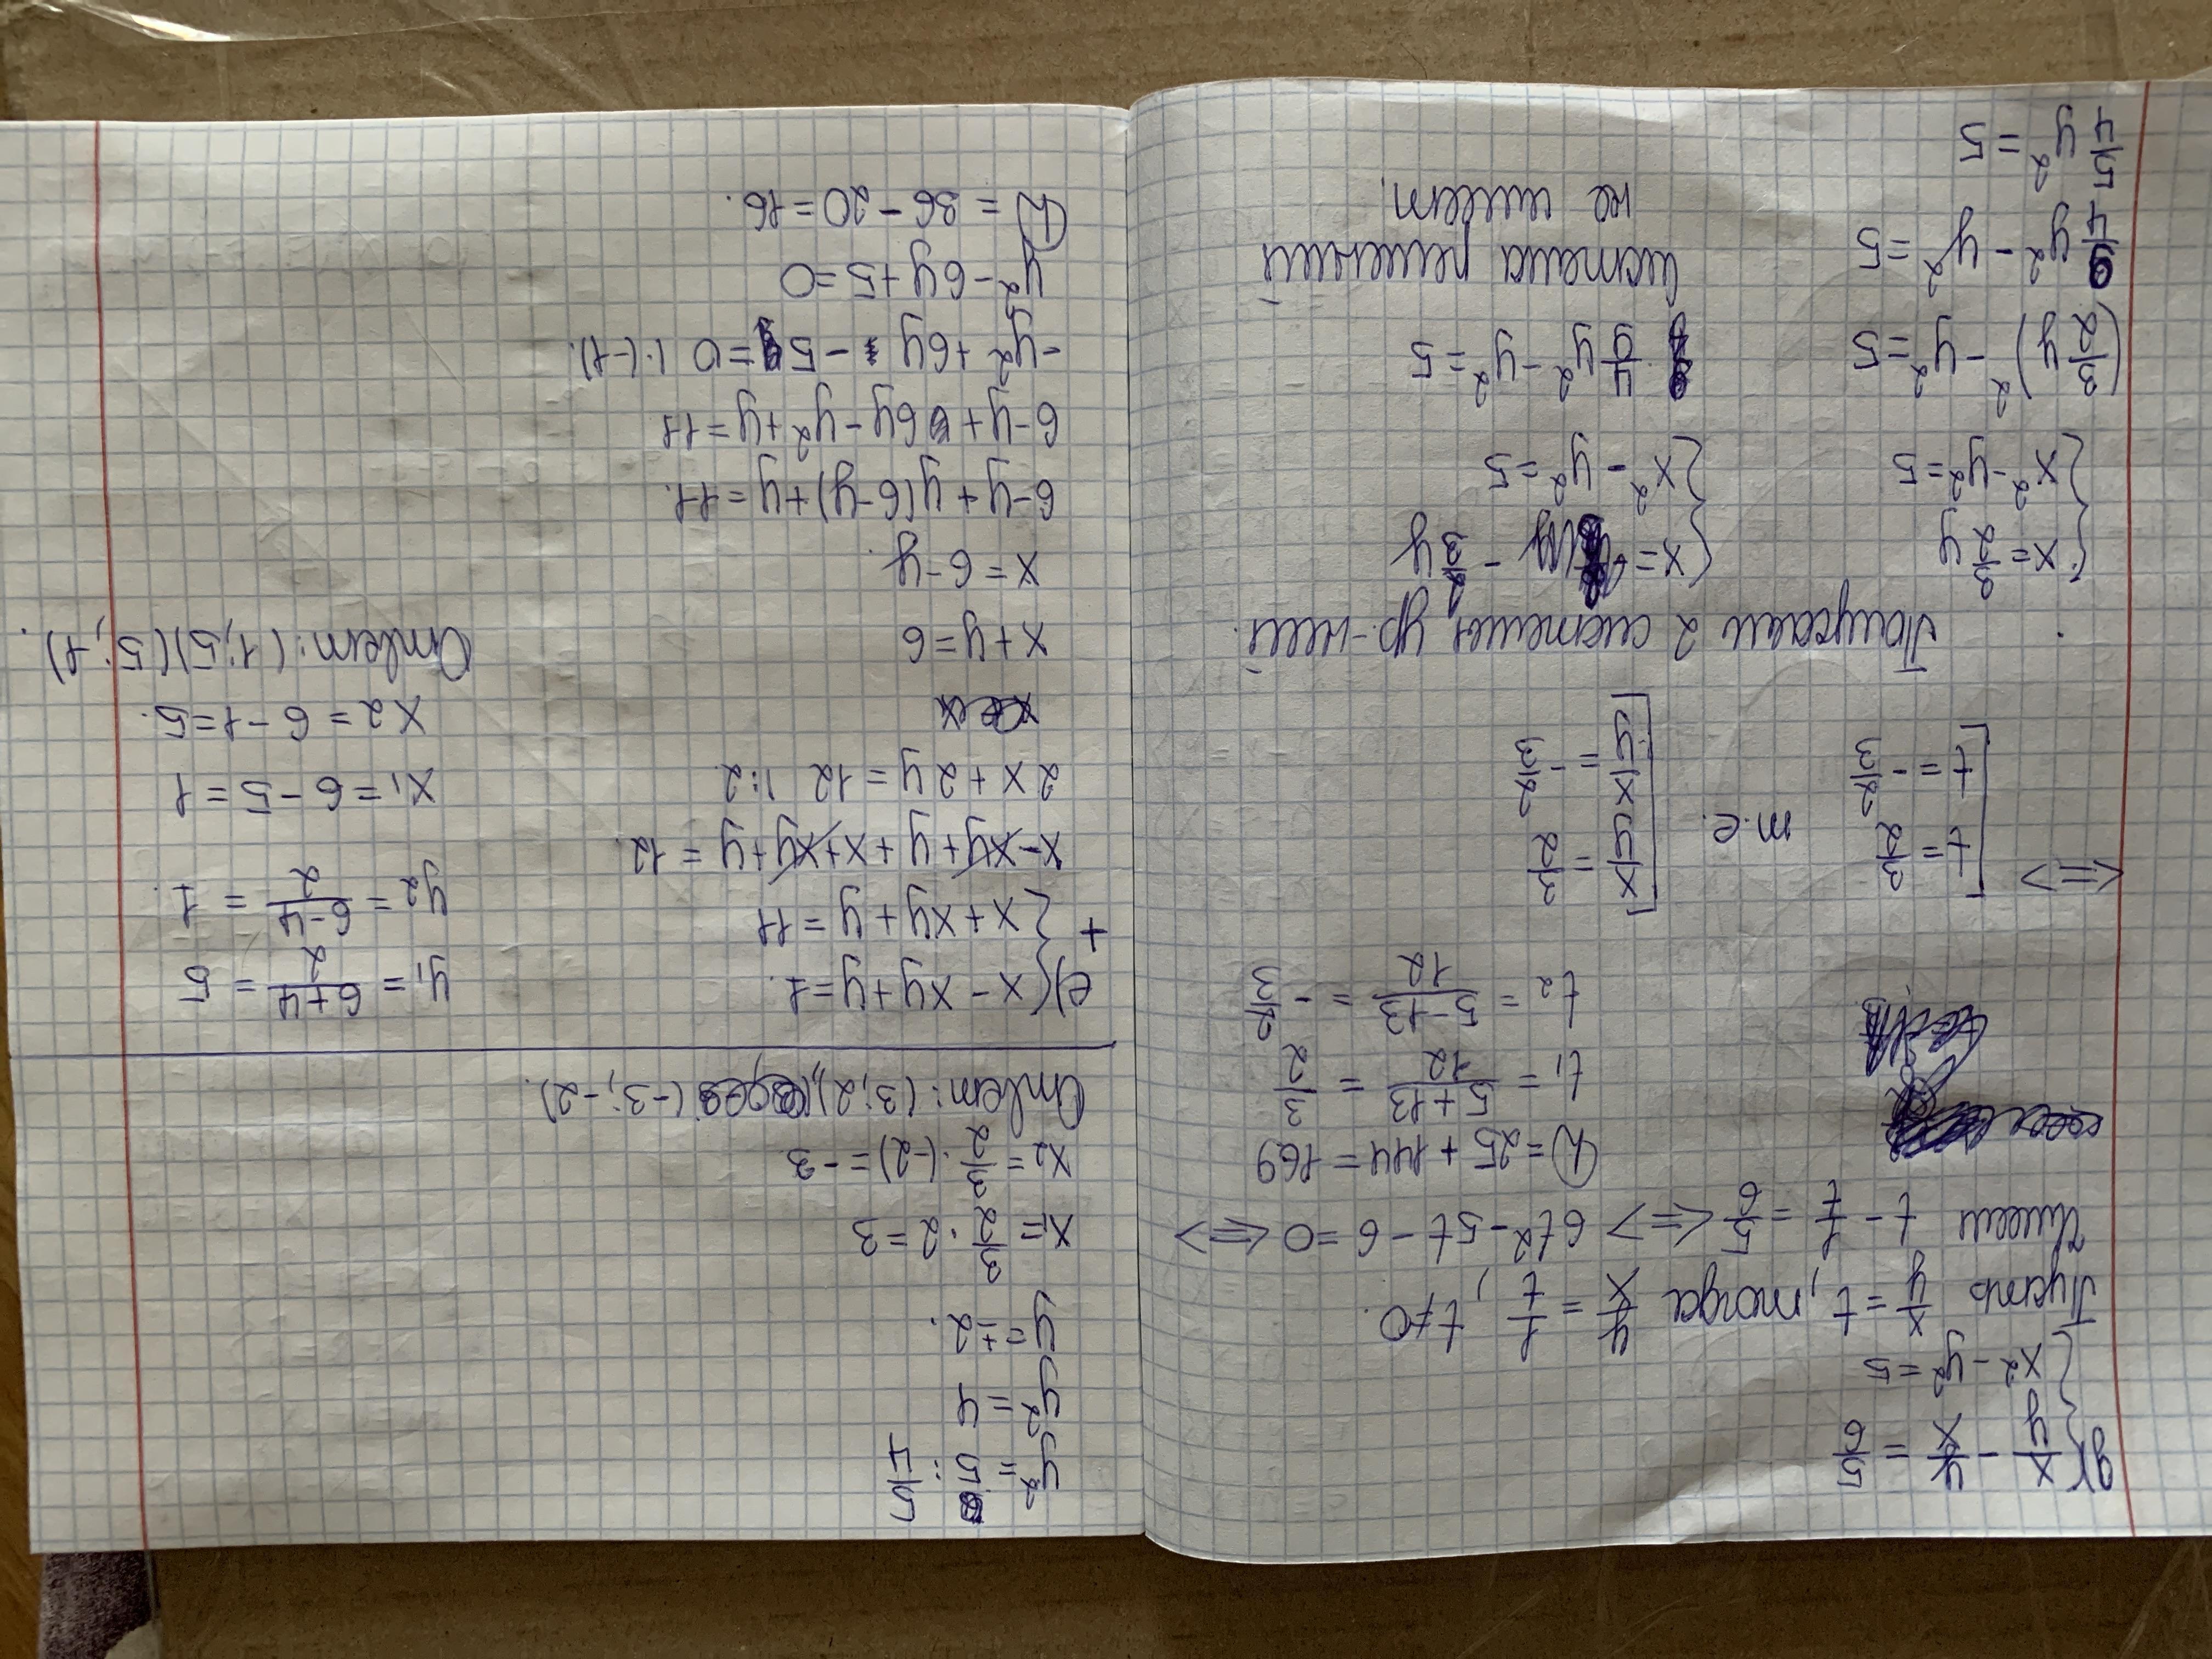 д) { x/y - y/x = 5/6
x² - y² = 5
Пусть x/y = t, тогда y/x = 1/t, t≠0.
Имеем t - 1/t = 5/6 <=> 6t² - 5t - 6 = 0 <=>
D = 25 + 144 = 169
t₁ = (5+13)/12 = 3/2
t₂ = (5-13)/12 = -2/3
<=> [ t = 3/2 т.е. [ x/y = 3/2
t = -2/3 x/y = -2/3
Получаем 2 системы ур-ний.
{ x = 3/2 y { x = -2/3 y
x² - y² = 5 x² - y² = 5
(3/2 y)² - y² = 5 4/9 y² - y² = 5
9/4 y² - y² = 5 Система решений
5/4 y² = 5 не имеет.
y² = 5 : 5/4
y² = 4
y = ±2.
x₁ = 3/2 · 2 = 3
x₂ = 3/2 · (-2) = -3
Ответ: (3; 2), (-3; -2).
е) { x - xy + y = 1.
+ x + xy + y = 11
x - xy + y + x + xy + y = 12.
2x + 2y = 12 |:2
x + y = 6
x = 6 - y.
6 - y + y(6 - y) + y = 11.
6 - y + 6y - y² + y = 11
-y² + 6y - 5 = 0 |·(-1).
y² - 6y + 5 = 0
D = 36 - 20 = 16.
y₁ = (6+4)/2 = 5
y₂ = (6-4)/2 = 1.
x₁ = 6 - 5 = 1
x₂ = 6 - 1 = 5.
Ответ: (1; 5) (5; 1).